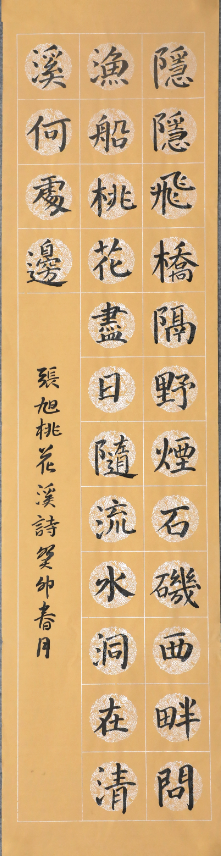 隱隱飛橋隔野煙石磯西畔問
漁船桃花盡日隨流水洞在清
溪何處邊
張旭桃花溪詩癸卯春月